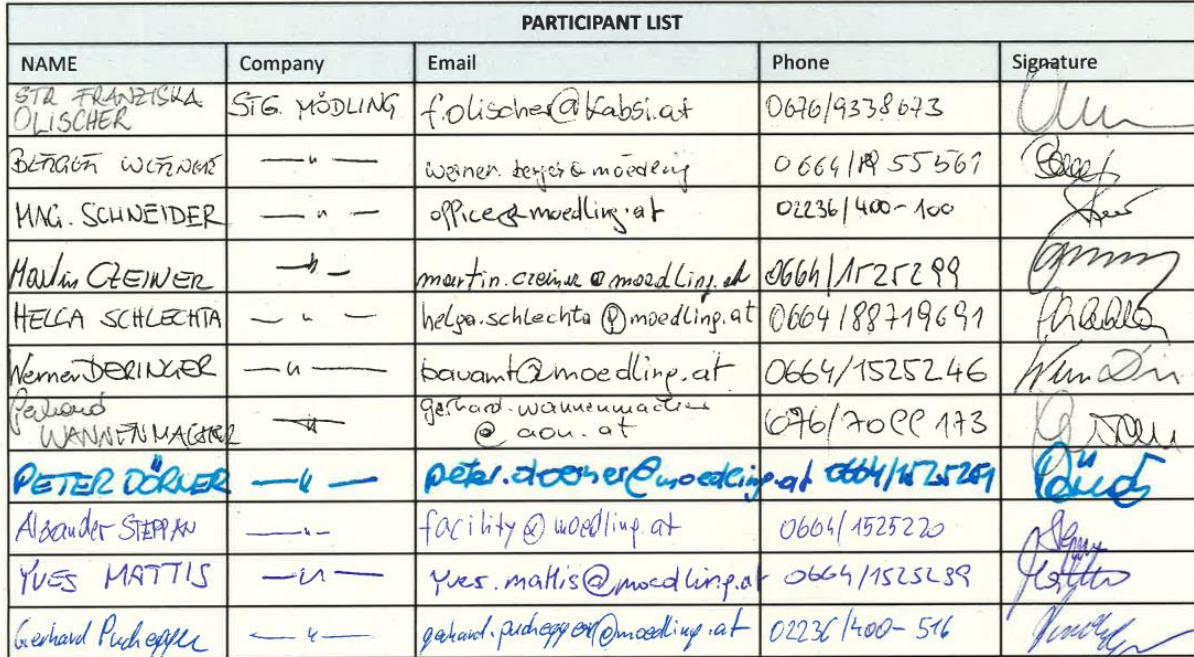 PARTICIPANT LIST
NAME Company Email Phone Signature
STR FRANZISKA
OLISCHER STG. MÖDLING f.olischer@kabsi.at 0676/9338673
BERGER WERNER —"— werner.berger@moedling 0664/
MAG. SCHNEIDER —"— office@moedling.at 02236/400-100
Martin CZEINER —"— martin.czeiner@moedling.at 0664/1525299
HELGA SCHLECHTA —"— helga.schlechta@moedling.at 0664/88719691
Werner DERINGER —"— bauamt@moedling.at 0664/1525246
Gerhard
WANNENMACHER —"— gerhard.wannenmacher
@aon.at 0676/70
PETER DÖRNER —"— peter.doerner@moedling.at
Alexander STEPPAN —"— facility@moedling.at 0664/1525220
YVES MATTIS —"— yves.mattis@moedling.at 0664/1525239
Gerhard Puchegger —"— gerhard.puchegger@moedling.at 02236/400-516